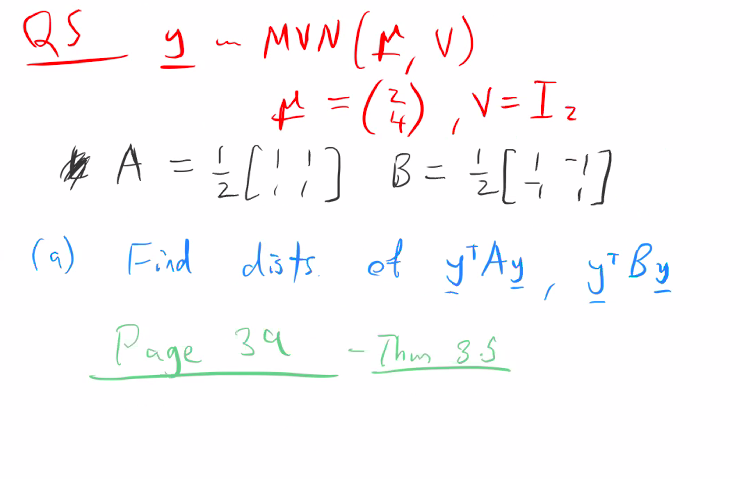 Q5 y ~ MVN(μ, V)
μ = (2 4), V = I₂
A = 1/2 [1 1 1 1] B = 1/2 [1 -1 -1 1]
(a) Find dists of yᵀAy, yᵀBy
Page 39 - Thm 3.5